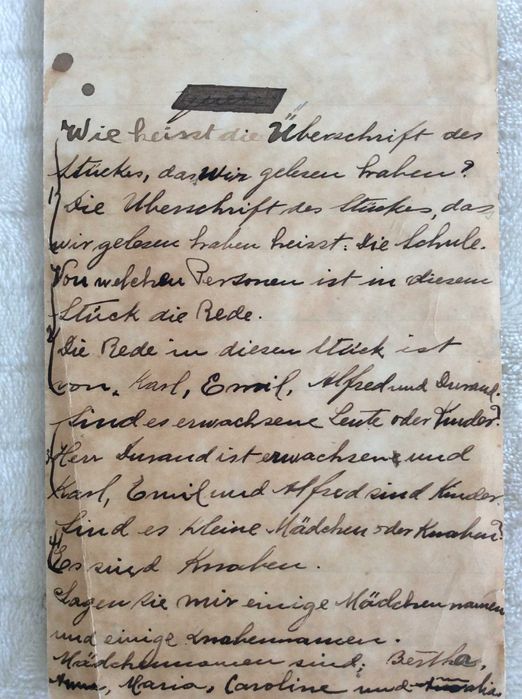 Wie heisst die Überschrift des
Stückes, das wir gelesen haben?
1) Die Überschrift des Stückes, das
wir gelesen haben heisst: Die Schule.
Von welchen Personen ist in diesem
Stück die Rede.
2) Die Rede in diesen Stück ist
von. Karl, Emil, Alfred und Durand.
Sind es erwachsene Leute oder Kinder?
3) Herr Durand ist erwachsen und
Karl, Emil und Alfred sind Kinder.
Sind es kleine Mädchen oder Knaben?
4) Es sind Knaben.
Sagen Sie mir einige Mädchennamen
und einige Knabennamen.
Mädchennamen sind: Bertha,
Anna, Maria, Caroline und